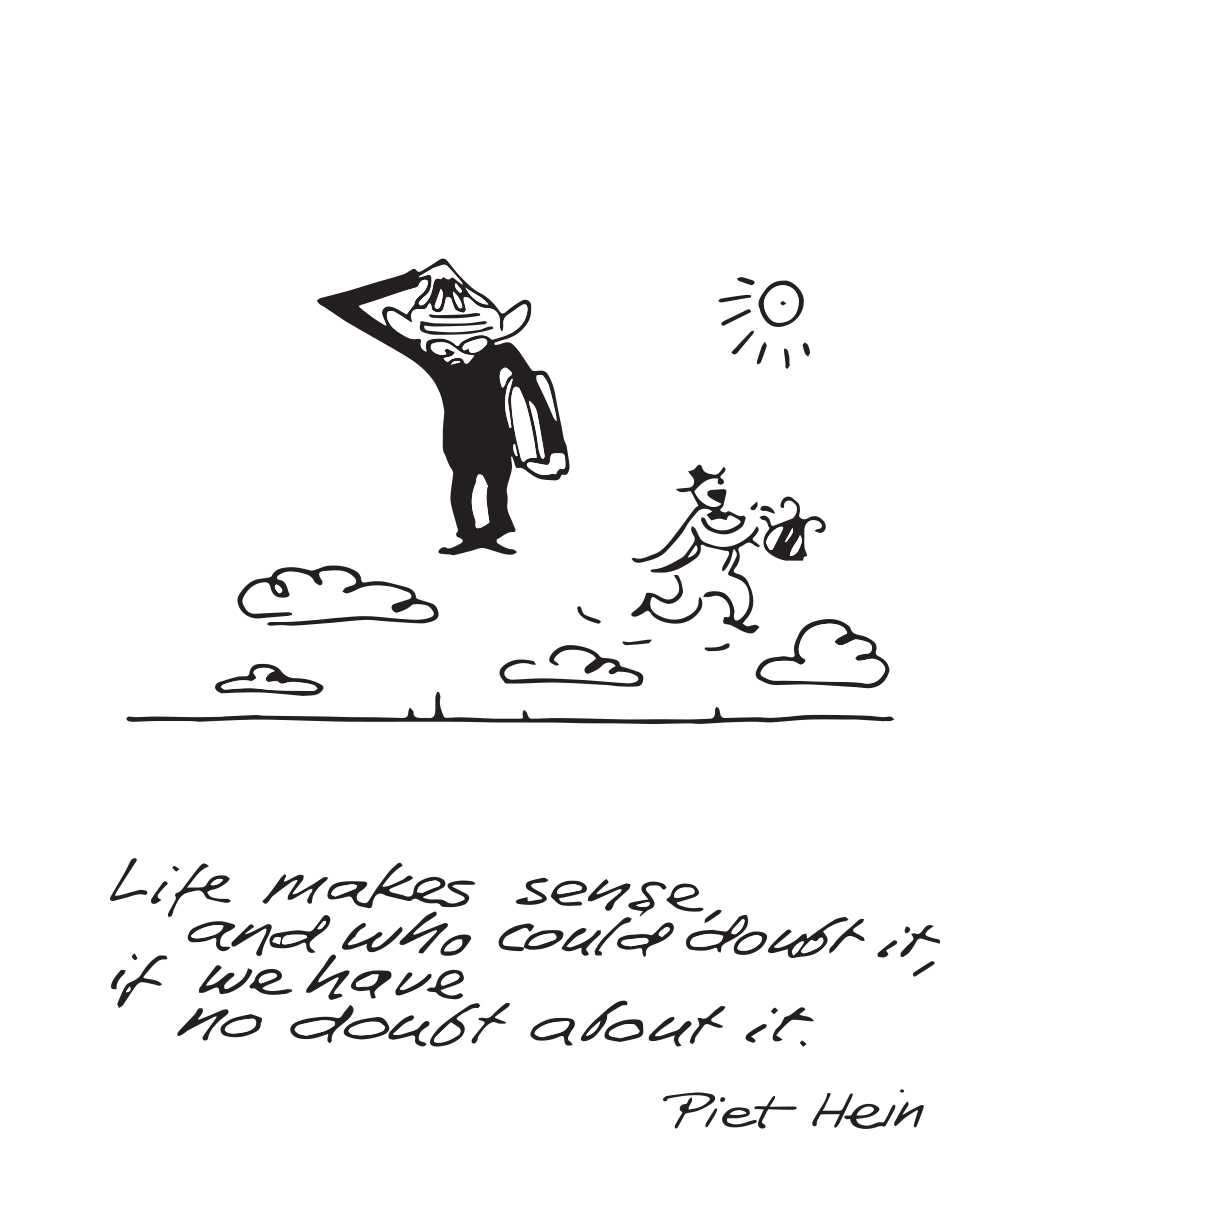 Life makes sense,
and who could doubt it,
if we have
no doubt about it.
Piet Hein